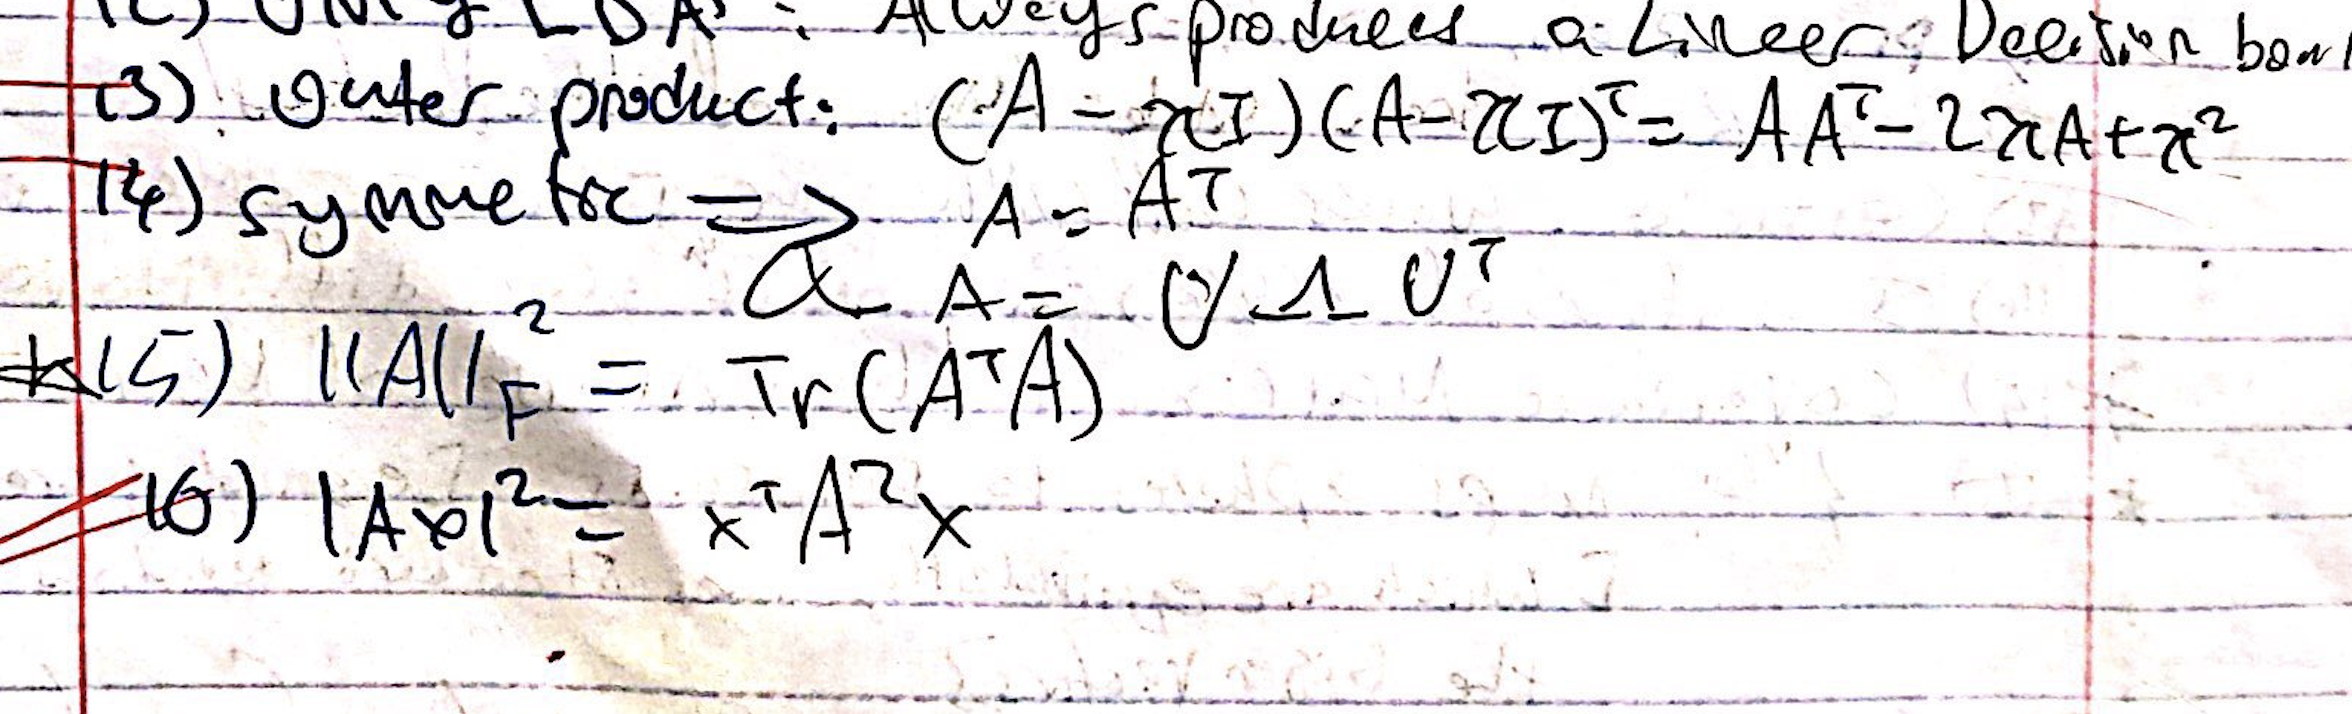 12) Only LDA: Always produces a Lineer Decision boun
13) Outer product: (A - xI)(A - xI)ᵀ = AAᵀ - 2xA + x²
14) symmetric => A = Aᵀ
& A = U Λ Uᵀ
*15) ||A||_F² = Tr(AᵀA)
16) |Ax|² = xᵀA²x